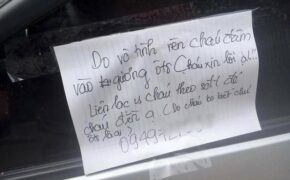 Do vô tình nên cháu chạm
vào gương ôtô Cháu xin lỗi ạ!!
Liên lạc vs cháu theo sđt để
cháu đền ạ (Do cháu ko biết chú
ở
0949